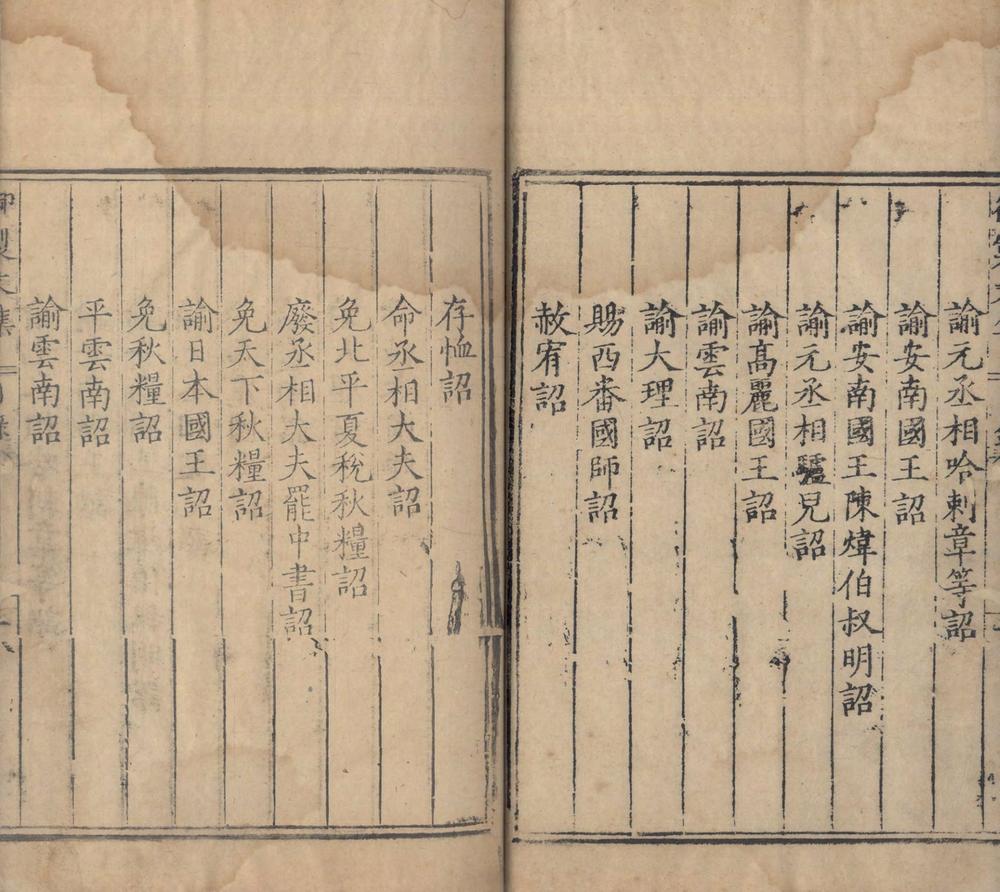 諭元丞相哈剌章等詔
諭安南國王詔
諭安南國王陳煒伯叔明詔
諭元丞相驢兒詔
諭髙麗國王詔
諭雲南詔
諭大理詔
賜西番國師詔
赦宥詔
存恤詔
命丞相大夫詔
免北平夏稅秋糧詔
廢丞相大夫罷中書詔
免天下秋糧詔
諭日本國王詔
免秋糧詔
平雲南詔
諭雲南詔
御製文集